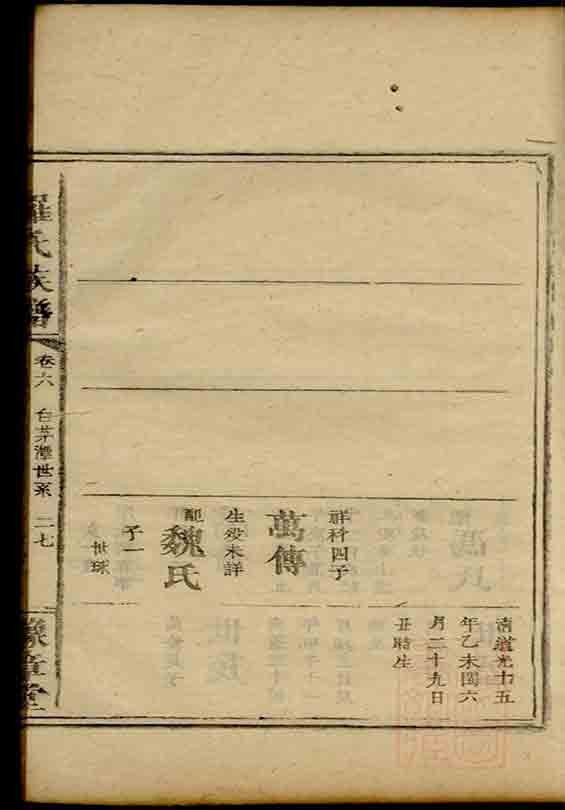 清道光十五
年乙未閏六
月二十九日
丑時生
祥科四子
萬傳
生殁未詳
配
魏氏
子一
世球
羅氏族譜
卷六
白茅潭世系
二七
豫章堂